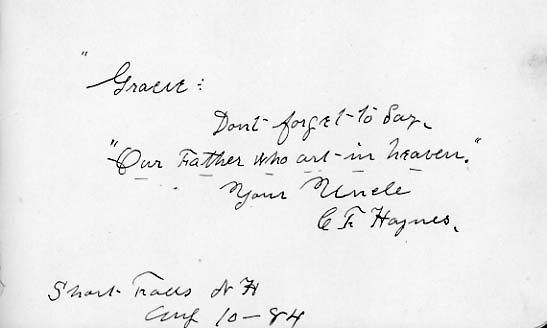 " Gracie:
Dont forget to Say,
"Our Father who art in heaven."
Your Uncle
C F Haynes.
Short Falls N H
Aug 10-84